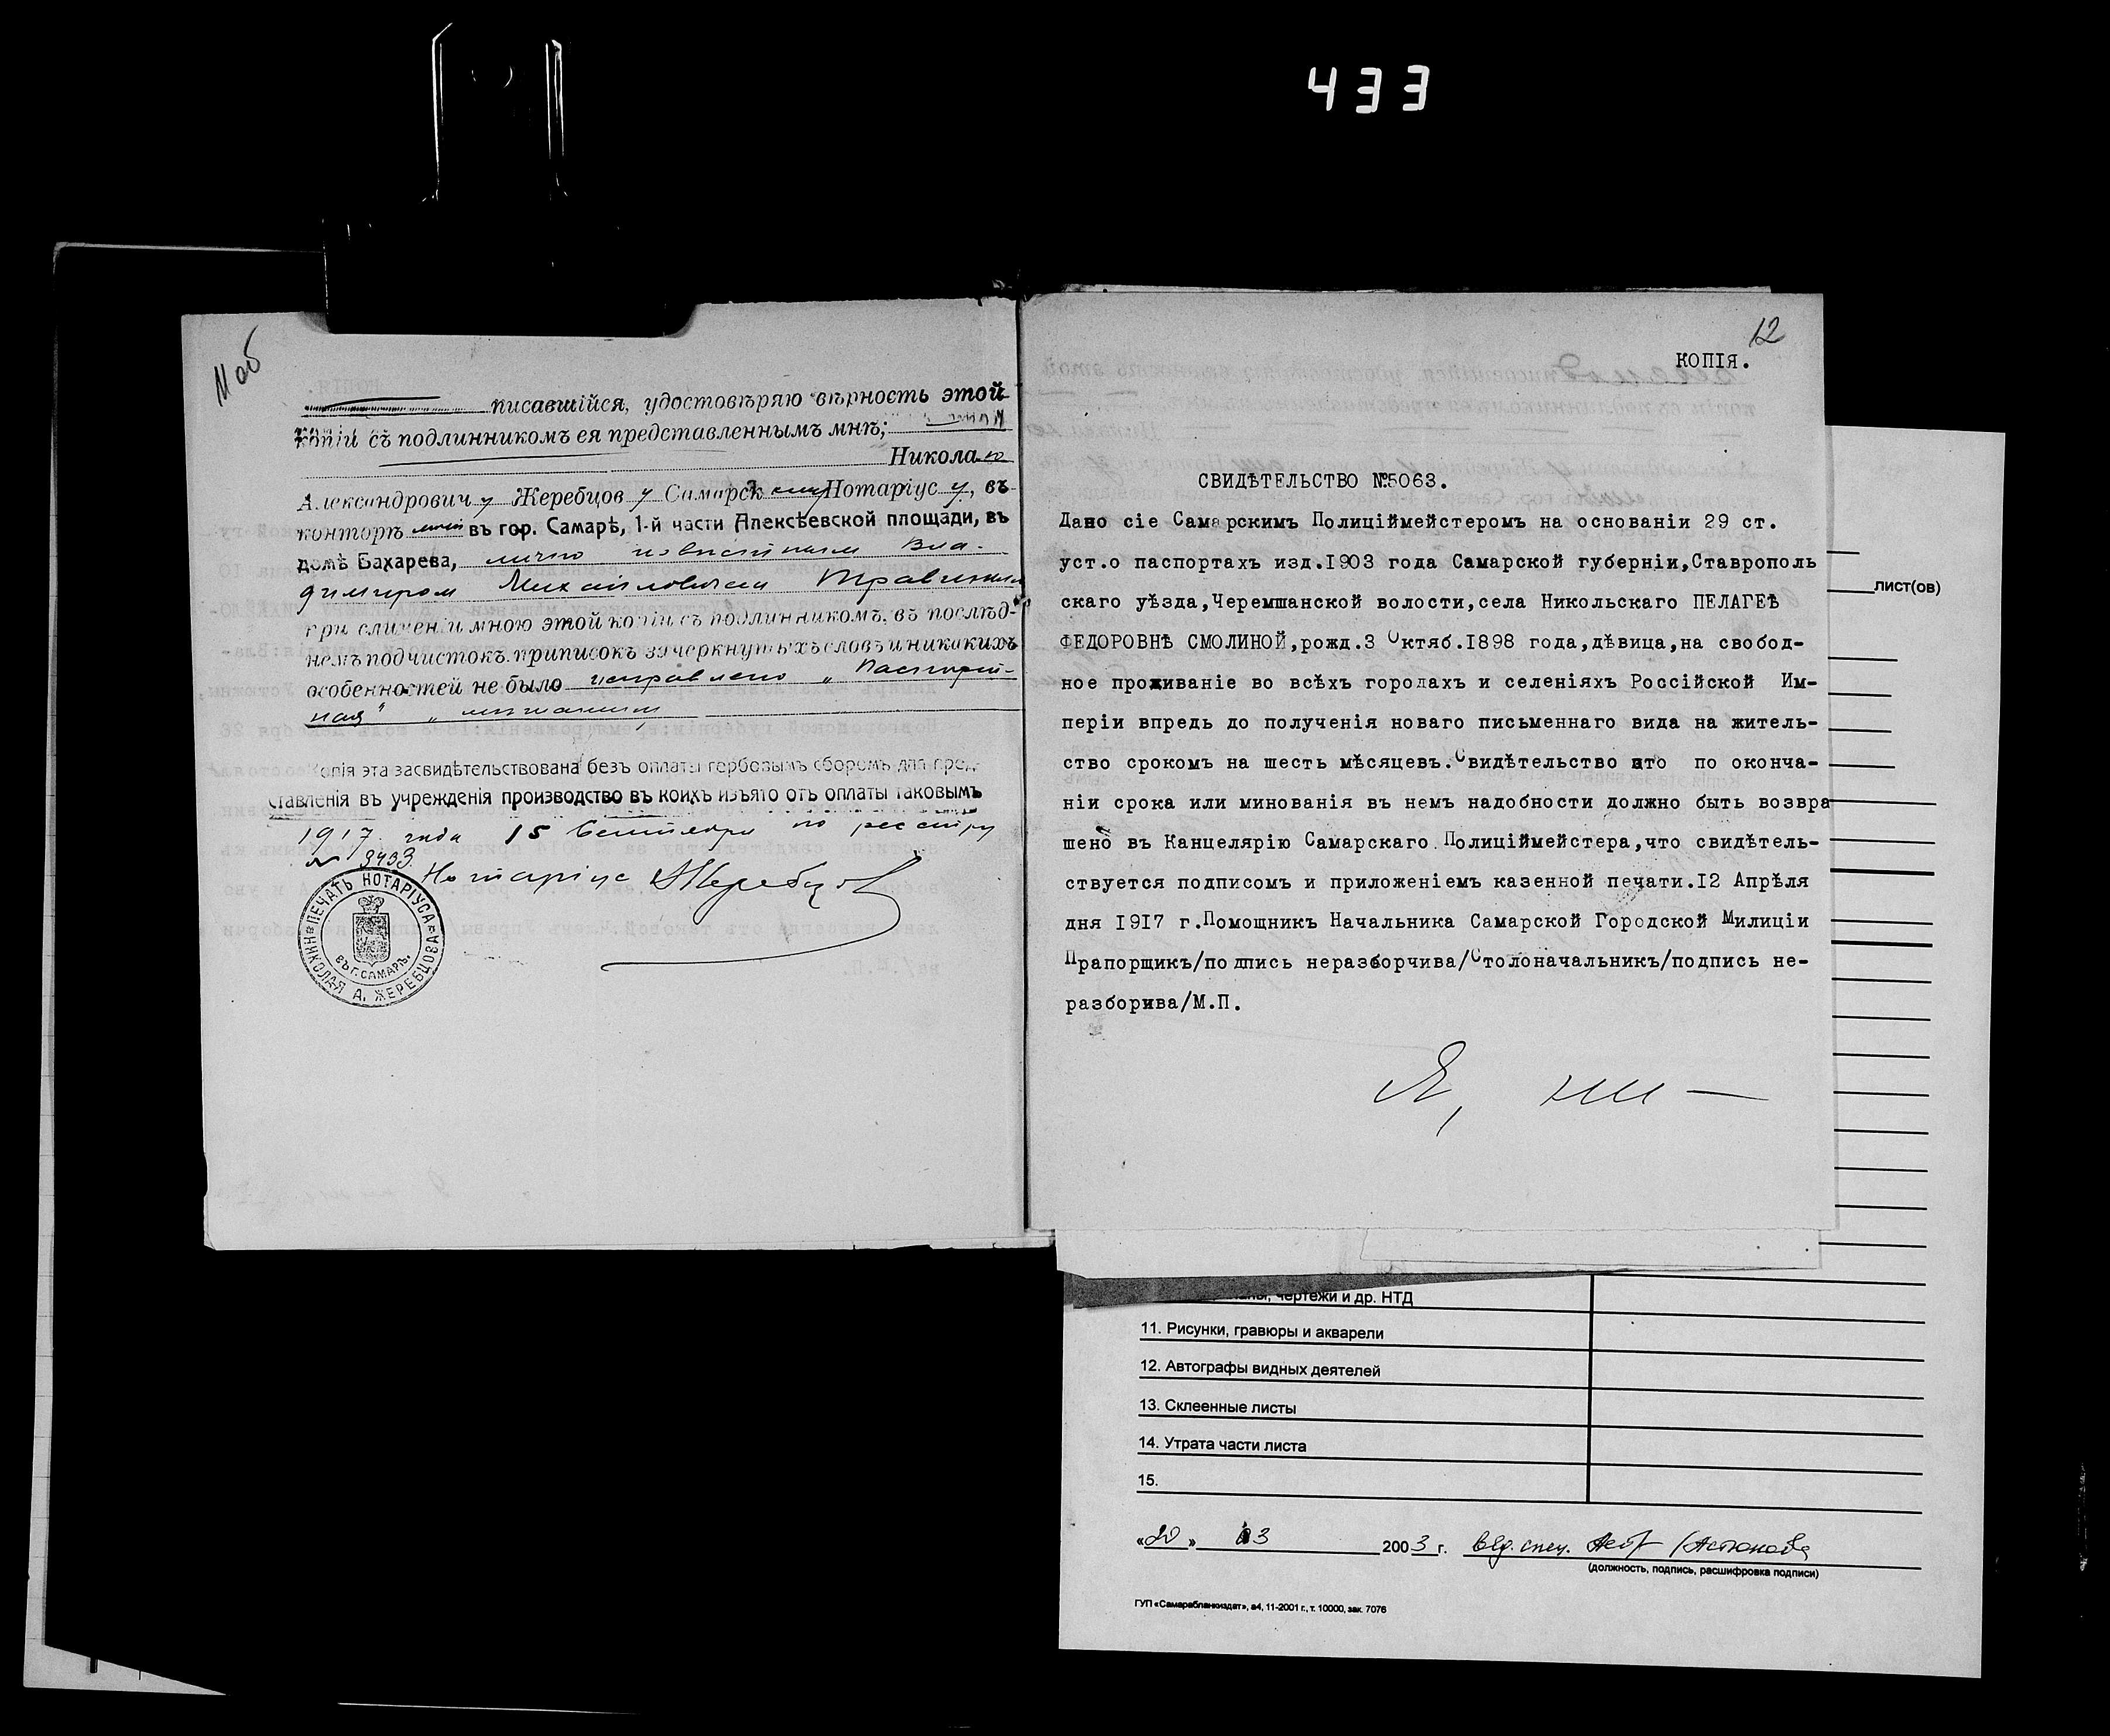 433
11 об
писавшійся, удостовѣряю вѣрность этой
копіи съ подлинникомъ ея представленнымъ мнѣ;
Николаю
Александровичу Жеребцову Самарскому Нотаріусу, въ
конторѣ моей въ гор. Самарѣ, 1-й части Алексѣевской площади, въ
домѣ Бахарева, лично извѣстнымъ Вла-
димиром Михайловичем
при сличеніи мною этой копіи съ подлинникомъ, въ послѣд-
немъ подчистокъ, приписокъ зачеркнутыхъ словъ и никакихъ
особенностей не было исправлено „Паспорт-
ная"
Копія эта засвидѣтельствована безъ оплаты гербовымъ сборомъ для пред-
ставленія въ учрежденія производство въ коихъ изъято отъ оплаты таковымъ
1917 года 15 Сентября по реестру
№ 3433
Нотаріус Жеребцов
ПЕЧАТЬ НОТАРІУСА НИКОЛАЯ А. ЖЕРЕБЦОВА
ВЪ Г. САМАРѢ.
12
КОПІЯ.
СВИДѢТЕЛЬСТВО №5063.
Дано сіе Самарскимъ Полиціймейстеромъ на основаніи 29 ст.
уст.о паспортахъ изд.1903 года Самарской губерніи,Ставрополь
скаго уѣзда,Черемшанской волости,села Никольскаго ПЕЛАГЕѢ
ФЕДОРОВНѢ СМОЛИНОЙ,рожд.3 Октяб.1898 года,дѣвица,на свобод-
ное проживаніе во всѣхъ городахъ и селеніяхъ Россійской Им-
періи впредь до полученія новаго письменнаго вида на житель-
ство срокомъ на шесть мѣсяцевъ.Свидѣтельство это по оконча-
ніи срока или минованія въ немъ надобности должно быть возвра
шено въ Канцелярію Самарскаго Полиціймейстера,что свидѣтель-
ствуется подписомъ и приложеніемъ казенной печати.12 Апрѣля
дня 1917 г.Помощникъ Начальника Самарской Городской Милиціи
Прапорщикъ/подпись неразборчива/Столоначальникъ/подпись не-
разборива/М.П.
Я, ни—
лист(ов)
чертежи и др. НТД
11. Рисунки, гравюры и акварели
12. Автографы видных деятелей
13. Склеенные листы
14. Утрата части листа
15.
«20» 03 2003 г. вед. спец.
(должность, подпись, расшифровка подписи)
ГУП «Самарабланкиздат», а4, 11-2001 г., т. 10000, зак. 7076